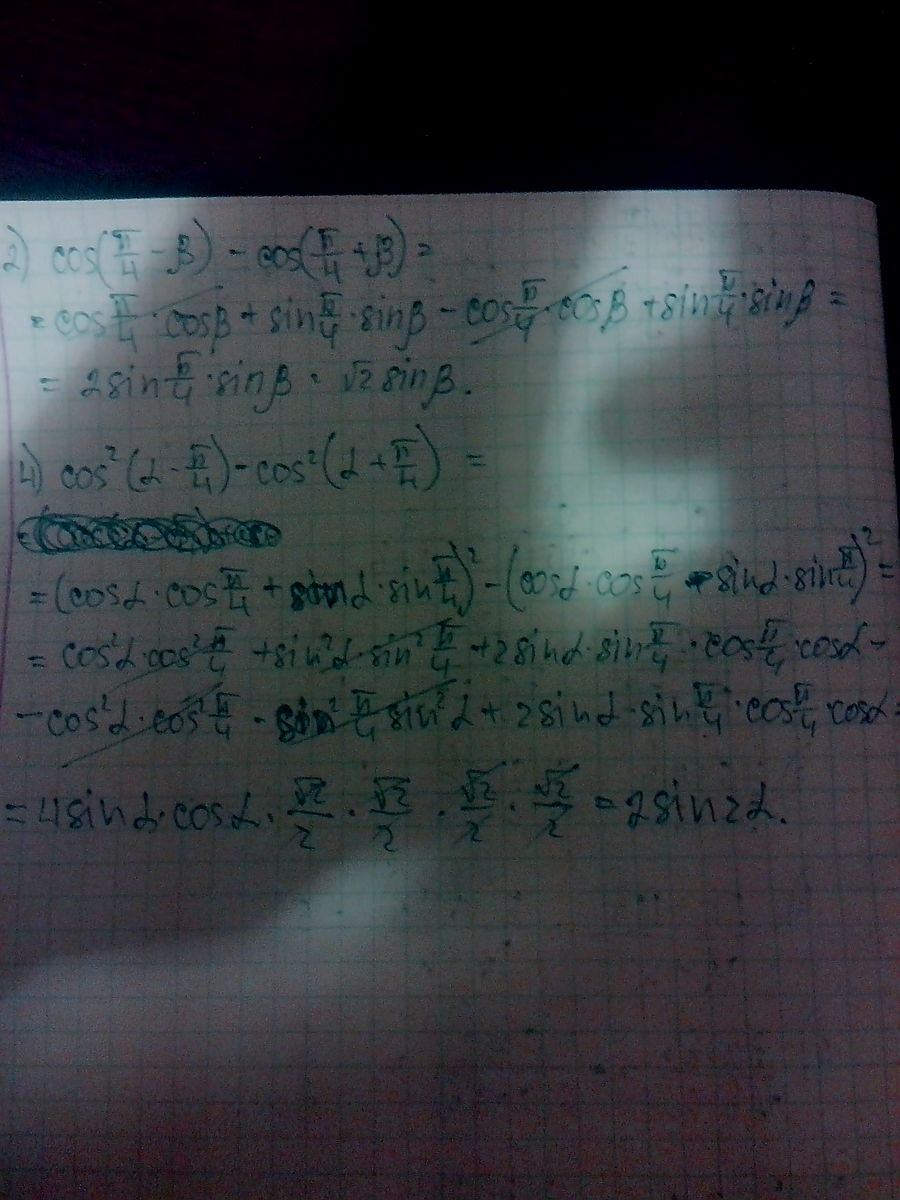 2) cos(π/4 - β) - cos(π/4 + β) =
= cos π/4 · cosβ + sin π/4 · sinβ - cos π/4 · cosβ + sin π/4 · sinβ =
= 2sin π/4 · sinβ = √2 sinβ.
4) cos²(α - π/4) - cos²(α + π/4) =
= (cosα · cos π/4 + sinα · sin π/4)² - (cosα · cos π/4 - sinα · sin π/4)² =
= cos²α · cos² π/4 + sin²α · sin² π/4 + 2sinα · sin π/4 · cos π/4 · cosα -
- cos²α · cos² π/4 - sin² π/4 sin²α + 2sinα · sin π/4 · cos π/4 · cosα =
= 4sinα · cosα · √2/2 · √2/2 · √2/2 · √2/2 = 2sin2α.